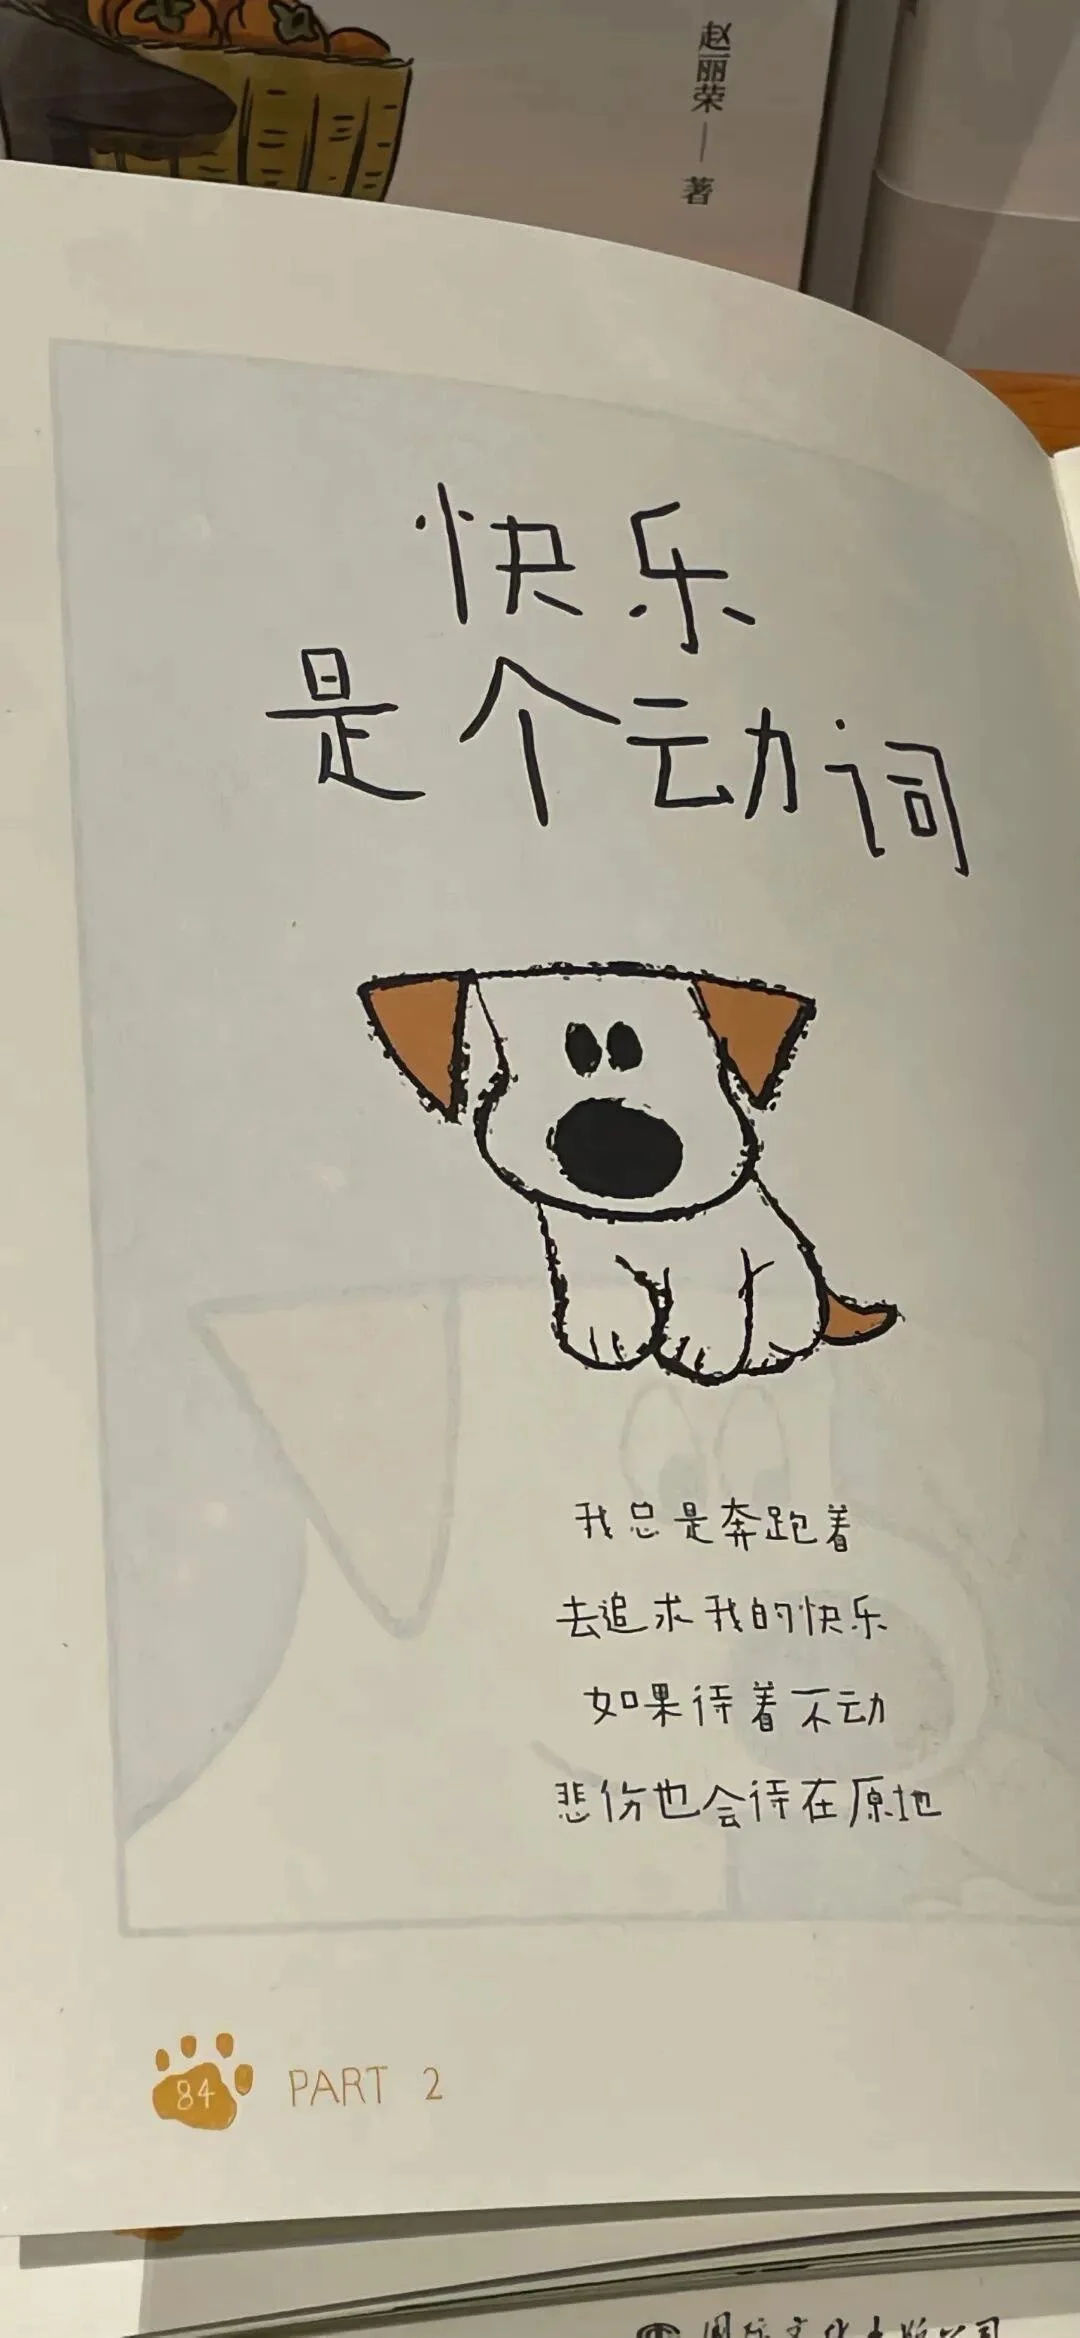 赵丽荣 — 著
快乐
是个动词
我总是奔跑着
去追求我的快乐
如果待着不动
悲伤也会待在原地
84 PART 2
国际文化出版公司